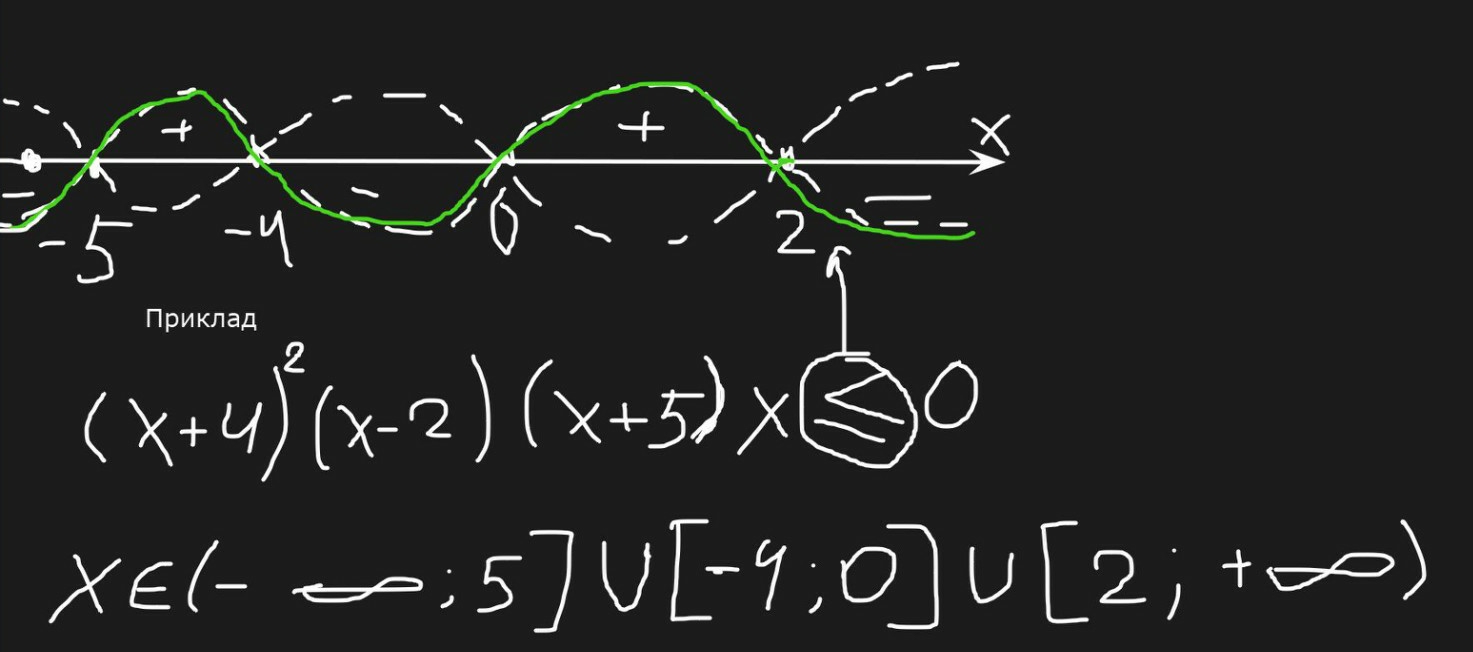 + + x
- 5 -4 - 0 2 -
Приклад
(x+4)²(x-2)(x+5)x≤0
x∈(-∞;5]∪[-4;0]∪[2;+∞)